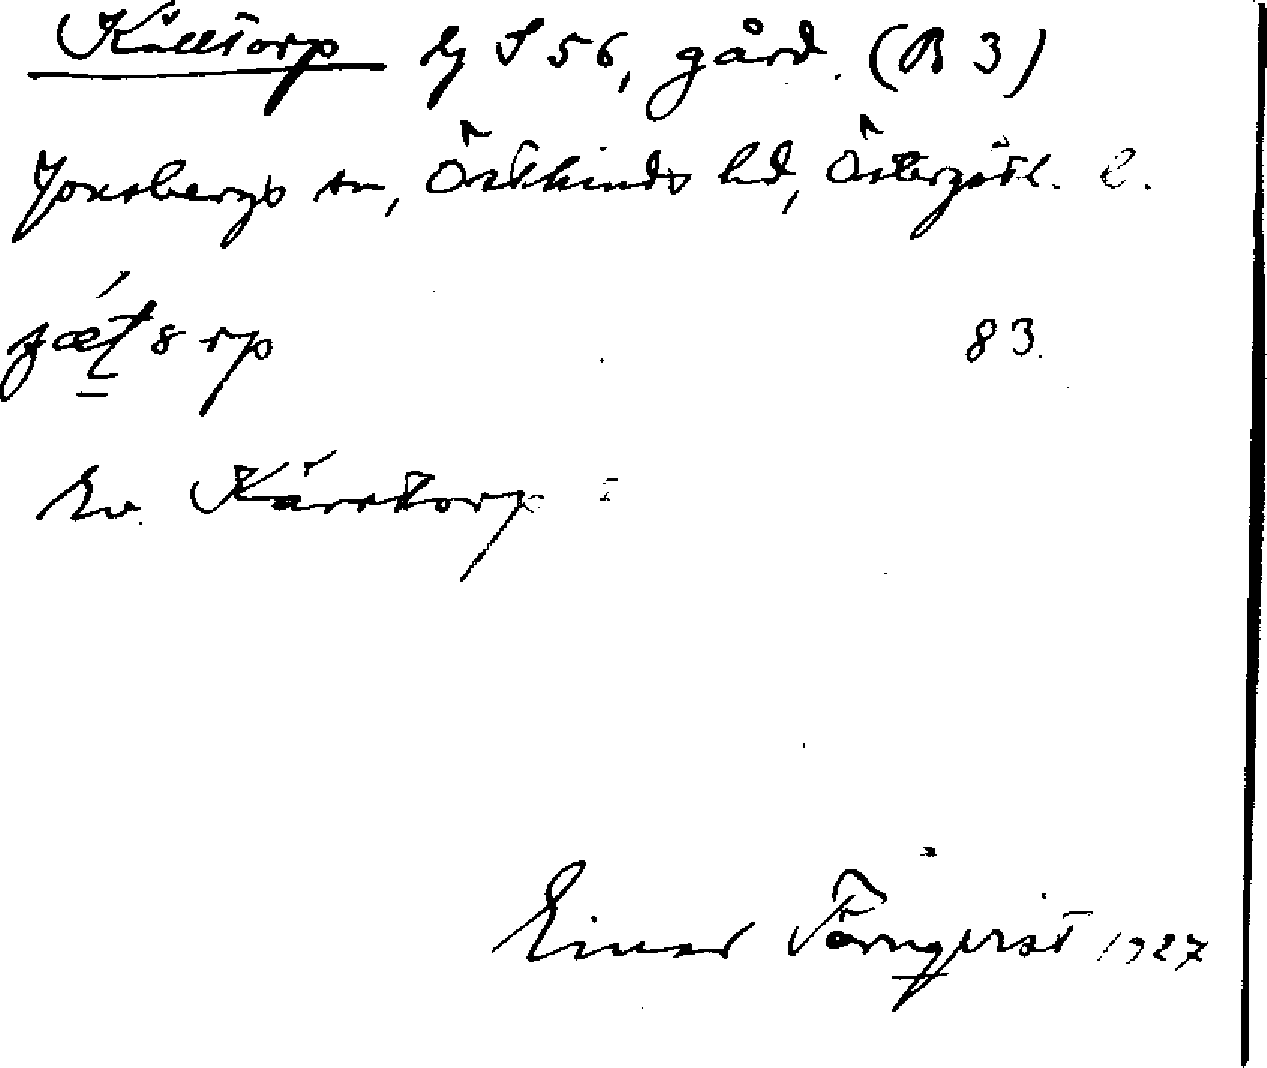 Källtorp lj S 56, gård. (B 3)
Jonsbergs sn, Östkinds hd, Östergötl. l.
83.
Kv. Kärrtorp
Einar Törnqvist 1927